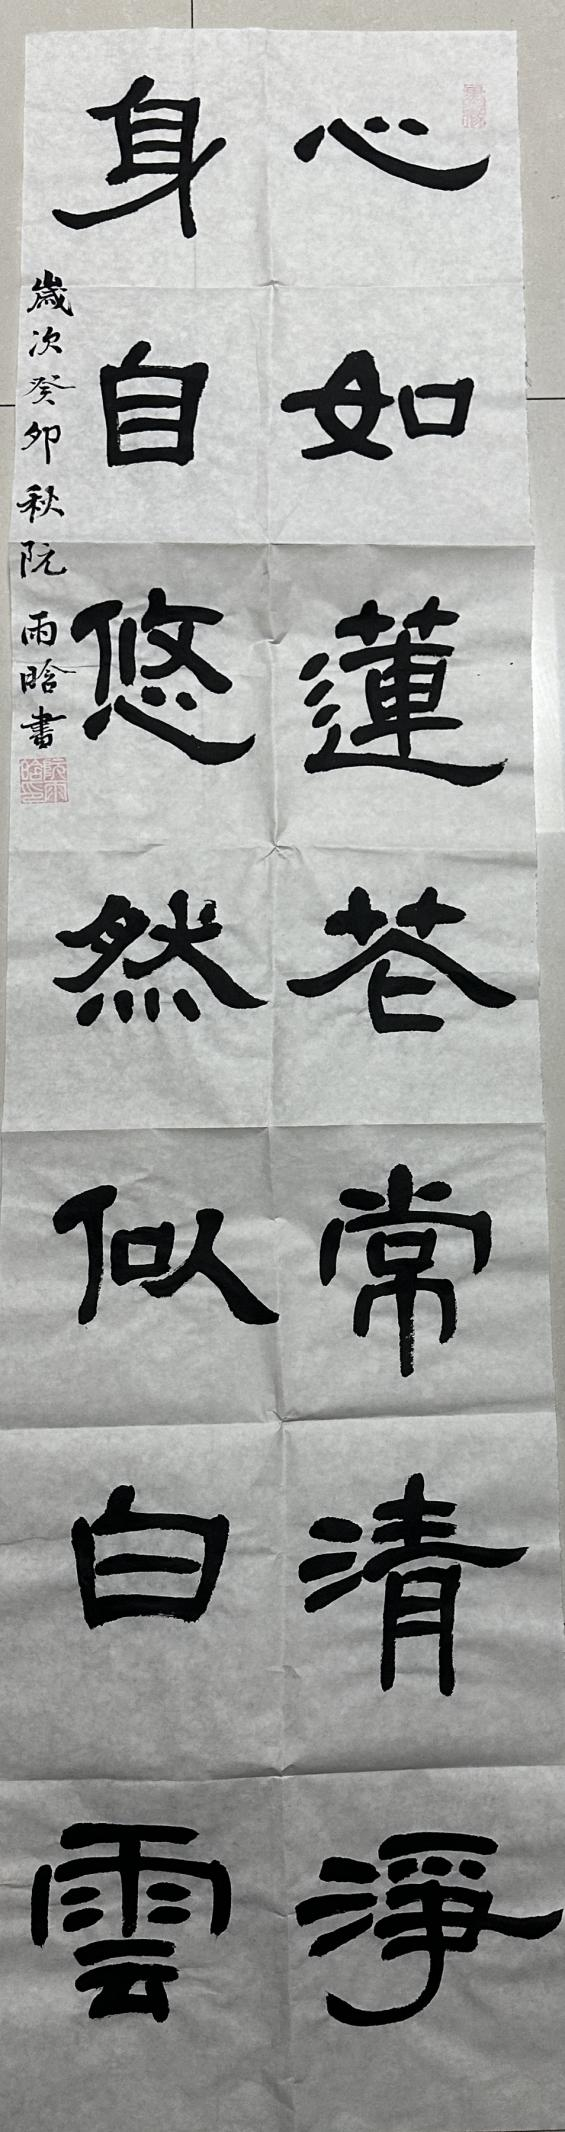 心如蓮花常清淨
身自悠然似白雲
歲次癸卯秋阮雨晗書